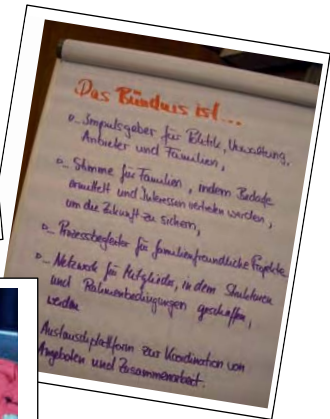 Das Bündnis ist...
o... Impulsgeber für Politik, Verwaltung,
Anbieter und Familien,
o... Stimme für Familien, indem Bedarfe
ermittelt und Interessen vertreten werden,
um die Zukunft zu sichern,
o... Prozessbegleiter für familienfreundliche Projekte
o... Netzwerk für Mitglieder, in dem Strukturen
und Rahmenbedingungen geschaffen,
werden
Austauschplattform zur Koordination von
Angeboten und Zusammenarbeit.